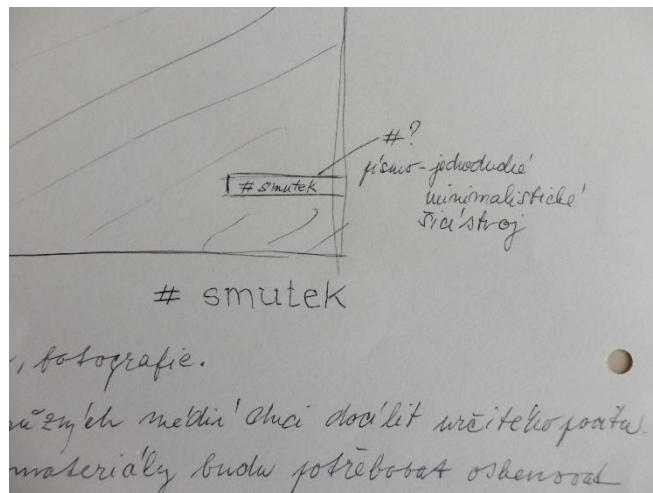 #?
písmo - jednoduché
minimalistické
šicí stroj
# smutek
# smutek
, fotografie.
různých médií chci docílit určitého pocitu.
materiály budu potřebovat oskenovat